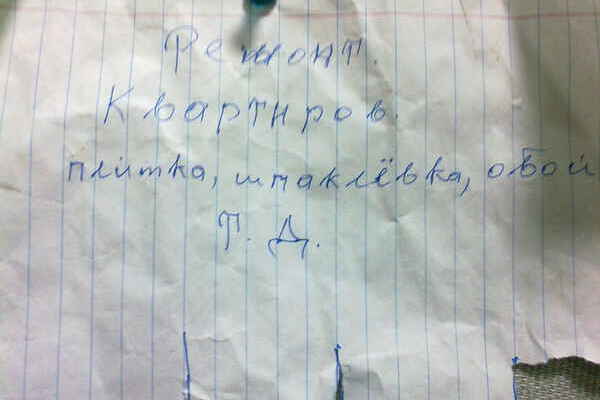 Ремонт.
Квартиров.
плитка, шпаклёвка, обои
Т. Д.